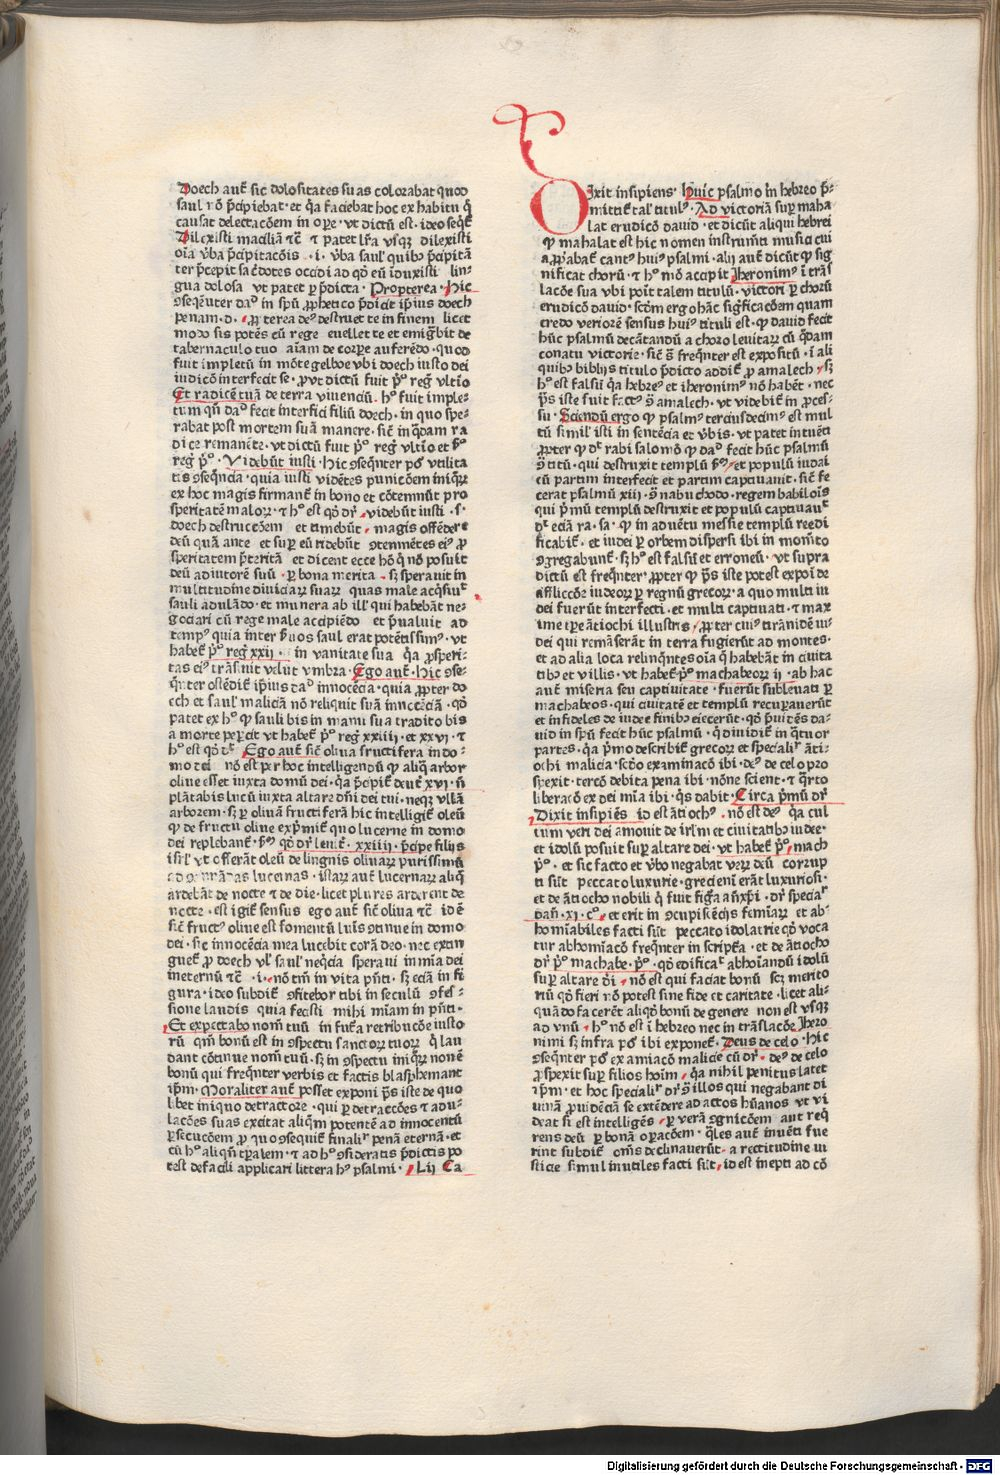 Doech aut̄ sic dolositates suas colorabat quod
saul nō p̄cipiebat · et q̄a faciebat hoc ex habitu q̄
causat delectacōem in oꝑe · vt dictū est · ideo seqt̄
Dilexisti maliciā ⁊c̄ ⁊ patet lr̄a vsqꝫ dilexisti
oīa v̄ba p̄cipitacōis · i · v̄ba saul' quibꝰ p̄cipitā
ter p̄cepit sac̄dotes occidi ad qd̄ eū īduxisti lin-
gua dolosa vt patet ꝑ p̄dicta · Propterea · Hic
ꝯseqn̄ter dauid in spū ꝓphetico p̄dicit ip̄ius doech
penam · d · ꝓpterea deꝰ destruet te in finem licet
modo sis potēs cū rege euellet te et emig̃bit de
tabernaculo tuo aīam de corꝑe auferēdo · quod
fuit impletū in mōte gelboe vbi doech iusto dei
iudicō interfecit se · ꝓvt dictū fuit pº reg̃ vltīo
Et radicē tuā de terra viuenciū · hº fuit imple-
tum qn̄ dauid fecit interfici filiū doech · in quo spe-
rabat post mortem suā manere · sic̄ in q̄dam ra
dice remanēte · vt dictū fuit pº reg̃ vltīo et sº
reg̃ pº · Videbūt iusti · hic ꝯseqn̄ter pōit vtilita
tis ꝯseqn̄cia · quia iusti vidētes punicōem iniqꝝ
ex hoc magis firmant̄ in bono et cōtemnūt pro
speritatem maloꝝ · ⁊ hº est qd̄ dr̄ · videbūt iusti · s ·
doech destructōem et timebūt · magis offēdere
deū quā ante et suꝑ eū ridebūt ꝯtemnētes eiꝰ ꝓ
speritatem p̄teritā et dicent ecce hō q̄ nō posuit
deū adiutorē suū · ꝑ bona merita · sꝫ sperauit in
multitudine diuiciaꝝ suaꝝ quas male acq̄siuit
sauli adulādo · et munera ab ill' qui habebāt ne-
gociari cū rege male accipiēdo et p̄ualuit ad
tempꝰ quia inter s̄uos saul erat potētissimꝰ · vt
habet̄ pº reg̃ xxii · in vanitate sua q̄a ꝓsperi-
tas eiꝰ trāsiuit velut vmbra · Ego aut̄ · Hic ꝯse-
q̄nter ostēdit̄ ip̄ius dauid innocēcia · quia ꝓpter do
ech et saul' maliciā nō reliquit suā innocēciā · qd̄
patet ex hº qꝫ sauli bis in manu sua tradito bis
a morte peꝑcit vt habet̄ pº reg̃ xxiiii · et xxvi · ⁊
hº est qd̄ dr̄ Ego aut̄ sic̄ oliua fructifera in do-
mo dei nō est per hoc intelligendū qꝫ aliq̄ arbor
oliue esset iuxta domū dei · q̄a p̄cipit̄ deut̄ xvi · nō
plātabis lucū iuxta altare dn̄i dei tui · neqꝫ vllā
arborem · sꝫ ꝑ oliuā fructiferā hic intelligit̄ oleū
qꝫ de fructu oliue exp̄mit̄ quo lucerne in domo
dei replebant̄ · sº qd̄ dr̄ leuit̄ · xxiiii · p̄cipe filijs
isrl' vt offerāt oleū de lingnis oliuaꝝ purissimū
lucernas · istaꝝ aut̄ lucernaꝝ aliq̄
ardebāt de nocte ⁊ de die · licet plures arderent de
nocte · est igit̄ sensus ego aut̄ sic̄ oliua ⁊c̄ id ē
sic̄ fructꝰ oliue est fomentū luīs ꝯtinue in domo
dei · sic innocēcia mea lucebit corā deo · nec extin
guet̄ ꝓ doech vl' saul' neq̄cia speraui in mīa dei
ineternū ⁊c̄ · i · nō tm̄ in vita pn̄ti · sꝫ eciā in fi
gura · ideo subdit̄ ꝯfitebor tibi in seculū ꝯfes-
sione laudis quia fecisti mihi mīam in pn̄ti ·
Et expectabo nom̄ tuū in fut̄a retribucōe iusto
rū qm̄ bonū est in ꝯspectu sanctoꝝ tuoꝝ q̄ lau
dant cōtinue nom̄ tuū · sꝫ in ꝯspectu iniqꝝ non ē
bonū qui freqn̄ter verbis et factis blasphemant
ip̄m · Moraliter aut̄ posset exponi p̄s iste de quo
libet iniquo detractore · qui ꝑ detraccōes ⁊ adu-
lacōes suas excitat aliqm̄ potentē ad innocentū
ꝑsecucōem ꝓ quo ꝯsequit̄ finalit̄ penā eternā · et
cū hº aliqn̄ tp̄alem · ⁊ ad hº ꝯsideratis p̄dictis po
test de facili applicari littera hꝰ psalmi · Lij Ca
Dixit insipiens · Huic psalmo in hebreo p̄-
mittit̄ tal' titulꝰ · Ad victoriā suꝑ maha
lat erudicō dauid · et dicūt aliqui hebrei
qꝫ mahalat est hic nomen instrum̄ti musici cui
a ꝓꝓbabat̄ cantꝰ huiꝰ psalmi · alij aut̄ dicūt qꝫ sig
nificat chorū · ⁊ hº mō accipit Iheronimꝰ ī trās
lacōe sua vbi poīt talem titulū · victori ꝑ chorū
erudicō dauid · sctm̄ ergo hāc sig̃ficacōem quam
credo veriorē sensus huiꝰ tituli est · qꝫ dauid fecit
hūc psalmū decātandū a choro leuitaꝝ cū q̄dam
conatu victorie · sic̄ s̄ freqn̄ter est expositū · ī ali
quibꝰ biblijs titulo p̄dicto addit̄ ꝓ amalech · sꝫ
hº est falsū q̄a hebreꝰ et iheronimꝰ nō habēt · nec
p̄s iste fuit factꝰ s̄ amalech · vt videbit̄ in ꝓces-
su · Sciendū ergo qꝫ psalmꝰ tercius decimꝰ est mul
tū simil' isti in sentēcia et v̄bis · vt patet intuēti
ꝓpter qꝫ dt̄ rabi salomō qꝫ dauid fecit hūc psalmū
ꝯ̄ titū · qui destruxit templū sm̄ · et populū iudai
cū partim interfecit et partim captiuauit · sic̄ fe
cerat psalmū xiii · ꝯ̄ nabuchodo · regem babilōīs
qui p̄mū templū destruxit et populū captiuauit
dt̄ eciā ra · sa · qꝫ in aduētu messie templū reedi
ficabit̄ · et iudei ꝑ orbem dispersi ibi in mom̄to
ꝯgregabunt̄ · sꝫ hº est falsū et erroneū · vt supra
dictū est freqn̄ter · ꝓpter qꝫ p̄s iste potest expoī de
affliccōe iudeoꝝ ꝑ regnū grecoꝝ · a quo multi iu
dei fuerūt interfecti · et multi captiuati · ⁊ max
ime tꝑe ātiochi illustris · ꝓpter cuiꝰ tirānidē iu-
dei qui remāserāt in terra fugierūt ad montes ·
et ad alia loca relinq̄ntes oīa q̄ habebāt in ciuita
tibꝰ et villis · vt habet̄ pº machabeoꝝ ij · ab hac
aut̄ miseria seu captiuitate · fuerūt subleuati ꝑ
machabeos · qui ciuitatē et templū recuꝑauerūt
et infideles de iudee finibꝰ eiecerūt · qd̄ p̄uidēs da-
uid in spū fecit hūc psalmū · q̄ diuidit̄ in q̄tuor
partes · q̄a p̄mo describit̄ grecoꝝ et specialit̄ āti-
ochi malicia · scd̄o examinacō ibi · deꝰ de celo pro
spexit · tercō debita pena ibi · nōne scient · ⁊ q̄rto
liberacō ex dei mīa ibi · q̄s dabit · Circa p̄mū dr̄
Dixit insipiēs id est ātiochꝰ · nō est deꝰ · q̄a cul
tum veri dei amouit de irl'm et ciuitatibꝰ iudee ·
et idolū posuit suꝑ altare dei · vt habet̄ pº mach
pº · et sic facto et v̄bo negabat veꝝ deū corrup
ti sūt peccato luxurie · greci eni erāt luxuriosi ·
et de ātiocho nobili q̄ fuit fig̃a ātixp̄i · dr̄ specialit̄
dan̄ · xi · cº · et erit in ꝯcupiscēcijs femīaꝝ et ab-
hoīabiles facti sūt peccato idolatrie qd̄ voca
tur abhoīacō freqn̄ter in script̄a · et de ātiocho
dr̄ pº machabe · pº · qd̄ edificauit abhoīandū idolū
suꝑ altare dei · nō est qui faciat bonū scꝫ merito
riū qd̄ fieri nō potest sine fide et caritate · licet ali-
quā do facerēt aliqd̄ bonū de genere non est vsqꝫ
ad vnū · hº nō est ī hebreo nec in trāslacōe Ihero
nimi sꝫ infra pōit ibi exponet̄ · Deus de celo · Hic
ꝯseqn̄ter pōit examīacō malicie cū dr̄ · deꝰ de celo
ꝓspexit suꝑ filios hoīm · q̄a nihil penitus latet
ip̄m · et hoc specialit̄ dr̄ ꝯ̄ illos qui negabant di
uinā ꝓuidēciā se extēdere ad actos hūanos vt vi
deat si est intelligēs · ꝑ verā ꝯgnicōem aut req̄
rens deū ꝑ bonā oꝑacōem · q̄les aut̄ inuēti fue
rint subdit̄ om̄s declinauerūt · a rectitudine iu
sticie simul inutiles facti sūt · id est inepti ad cō
Digitalisierung gefördert durch die Deutsche Forschungsgemeinschaft · DFG